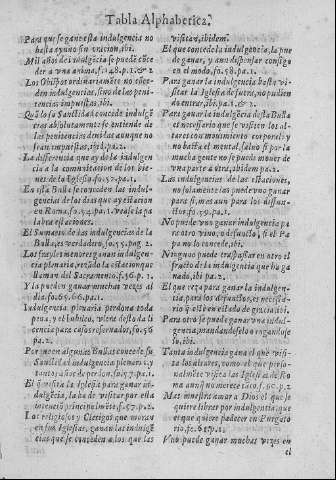 Tabla Alphabetica.
Para que se gane esta indulgencia no
basta ayuno sin vncion, ibi.
Mil años de indulgēcia se puede cōce
der a vna anima, f. 148. p. 1. & 2
Los Obispos ordinariamēte no ecce-
den indulgencias, sino de las peni-
tencias impuestas, ibi.
Quādo su Santidad concede indulgē
cias absolutamente se entiende de
las penitencias deuidas aunque no
sean impuestas, ibid.
La differencia que ay de la indulgen
cia a la commutacion de los bie-
nes de la Iglesia
En esta Bulla se conceden las indul-
gencias de los dias que ay estacion
en Roma, vease la pa
labra estaciones.
El Sumario de las indulgencias de la
Bulla, es verdadero, fo. 55. pag. 2.
Los frayles menores ganan indulgen-
cia plenaria, rezādo la estacion que
llaman del Sacramento, f. 56. p. 1.
Y la pueden ganar muchas vezes al
dia, fo. 65. 66. pa. 1.
Indulgencia plenaria perdona toda
pena, y el Iubileo, viene desto la li-
cencia para casos reseruados, fo. 56
pa. 2.
Porque en algunas Bullas concede su
Santidad indulgencia plenaria,
y tantos años de perdon, fo. 57. pa. 1.
El q̄ visita la Iglesia para ganar in-
dulgencia, la ha de visitar por esta
intencio principalmēte, f. 57. p. 2.
Los religiosos y Clerigos que moran
en sus Iglesias, ganan las indulgē-
cias que se conceden a los que las
visitan, ibidem.
El que concede la indulgēcia, la pue
de ganar, y aun dispensar consigo
en el modo, fo. 58. pa. 1.
Para ganar la indulgencia basta vi-
sitar la Iglesia de fuera, no pudien
do entrar, ibi. pa. 1. & 2.
Para ganar la indulgēcia desta Bulla
es necessario que se visiten los al-
tares con mouimiento corporal: y
no basta el mental, saluo si por la
mucha gente no se puede mouer de
vna parte a otra, ibidem pa. 2.
Las indulgencias de las estaciones,
no solamente las puede vno ganar
para si, mas aun para los difun-
ctos, fo. 59. pa. 1.
No puede vno ganar indulgencia pa
ra otro viuo, o defuncto, si el Pa
pa no lo concede, ibi.
Ninguno puede traspassar en otro el
fructo de la indulgencia que ha ga
nado, ibi. pa. 2.
El que reza para ganar la indulgen-
cia, para los defunctos, es necessa-
rio q̄ estē en estado de gracia, ibi.
Para otro se puede ganar vna indul-
gencia, mandandoselo o rogandose
lo, ibi.
Tanta indulgencia gana el que visi-
ta los altares, como el que perso-
nalmēte visita las Iglesias de Ro
ma aunq̄ no merece tāto, f. 60. p. 2
Mas nuestra amor a Dios el que se
quiere librar por indulgentia, que
el que quiere padecer en Purgato
rio, fo. 61. p. 1.
Vno puede ganar muchas vezes en
el